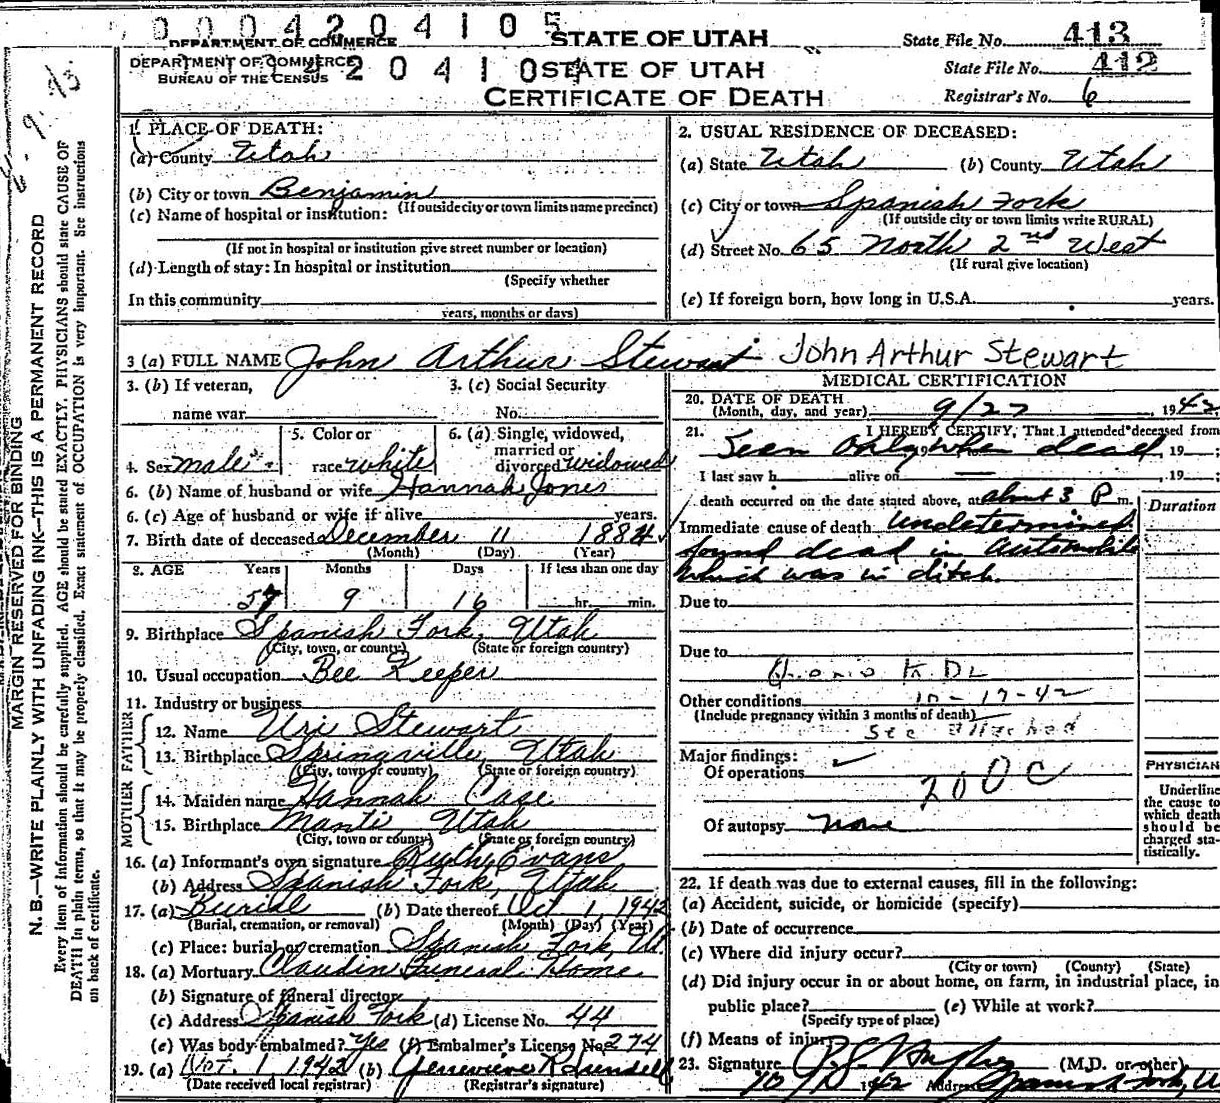 0004204105
DEPARTMENT OF COMMERCE STATE OF UTAH State File No. 413
DEPARTMENT OF COMMERCE STATE OF UTAH State File No. 412
BUREAU OF THE CENSUS
CERTIFICATE OF DEATH Registrar's No. 6
MARGIN RESERVED FOR BINDING
N. B.—WRITE PLAINLY WITH UNFADING INK—THIS IS A PERMANENT RECORD
Every item of information should be carefully supplied. AGE should be stated EXACTLY. PHYSICIANS should state CAUSE OF
DEATH in plain terms, so that it may be properly classified. Exact statement of OCCUPATION is very important. See instructions
on back of certificate.
1. PLACE OF DEATH:
(a) County Utah
(b) City or town Benjamin
(If outside city or town limits name precinct)
(c) Name of hospital or institution:
(If not in hospital or institution give street number or location)
(d) Length of stay: In hospital or institution
(Specify whether
In this community
years, months or days)
2. USUAL RESIDENCE OF DECEASED:
(a) State Utah (b) County Utah
(c) City or town Spanish Fork
(If outside city or town limits write RURAL)
(d) Street No. 65 North 2nd West
(If rural give location)
(e) If foreign born, how long in U.S.A. years.
3 (a) FULL NAME John Arthur Stewart John Arthur Stewart
3. (b) If veteran, 3. (c) Social Security
name war No.
4. Sex male 5. Color or race white 6. (a) Single, widowed, married or divorced widowed
6. (b) Name of husband or wife Hannah Jones
6. (c) Age of husband or wife if alive years.
7. Birth date of deceased December 11 1884
(Month) (Day) (Year)
8. AGE Years Months Days If less than one day
57 9 16 hr. min.
9. Birthplace Spanish Fork, Utah
(City, town, or county) (State or foreign country)
10. Usual occupation Bee Keeper
11. Industry or business
FATHER
12. Name Uri Stewart
13. Birthplace Springville, Utah
(City, town or county) (State or foreign country)
MOTHER
14. Maiden name Hannah Case
15. Birthplace Manti Utah
(City, town or county) (State or foreign country)
16. (a) Informant's own signature Ruth Evans
(b) Address Spanish Fork, Utah
17. (a) Burial (b) Date thereof Oct 1, 1942
(Burial, cremation, or removal) (Month) (Day) (Year)
(c) Place: burial or cremation Spanish Fork, Ut.
18. (a) Mortuary Claudin Funeral Home
(b) Signature of funeral director
(c) Address Spanish Fork (d) License No. 44
(e) Was body embalmed? Yes (f) Embalmer's License No. 274
19. (a) Oct. 1 1942 (b) Genevieve R
(Date received local registrar) (Registrar's signature)
MEDICAL CERTIFICATION
20. DATE OF DEATH
(Month, day, and year) 9/27, 1942
21. I HEREBY CERTIFY, That I attended deceased from
Seen only when dead, 19 ;
I last saw h alive on , 19 ;
death occurred on the date stated above, at about 3 P m.
Duration
Immediate cause of death Undetermined
found dead in Automobile
which was in ditch.
Due to
Due to
Other conditions 10-17-42
(Include pregnancy within 3 months of death)
See attached
Major findings:
Of operations
200c
Of autopsy none
PHYSICIAN
Underline
the cause to
which death
should be
charged sta-
tistically.
22. If death was due to external causes, fill in the following:
(a) Accident, suicide, or homicide (specify)
(b) Date of occurrence
(c) Where did injury occur?
(City or town) (County) (State)
(d) Did injury occur in or about home, on farm, in industrial place, in
public place? (e) While at work?
(Specify type of place)
(f) Means of injury
23. Signature (M.D. or other)
1942 Address Spanish Fork, U